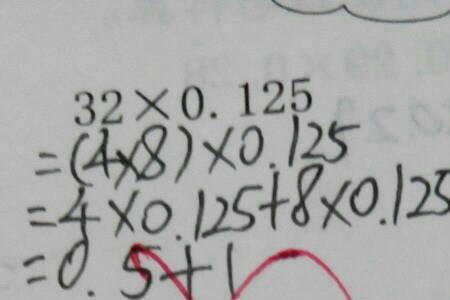 32×0.125
=(4×8)×0.125
=4×0.125+8×0.125
=0.5+1